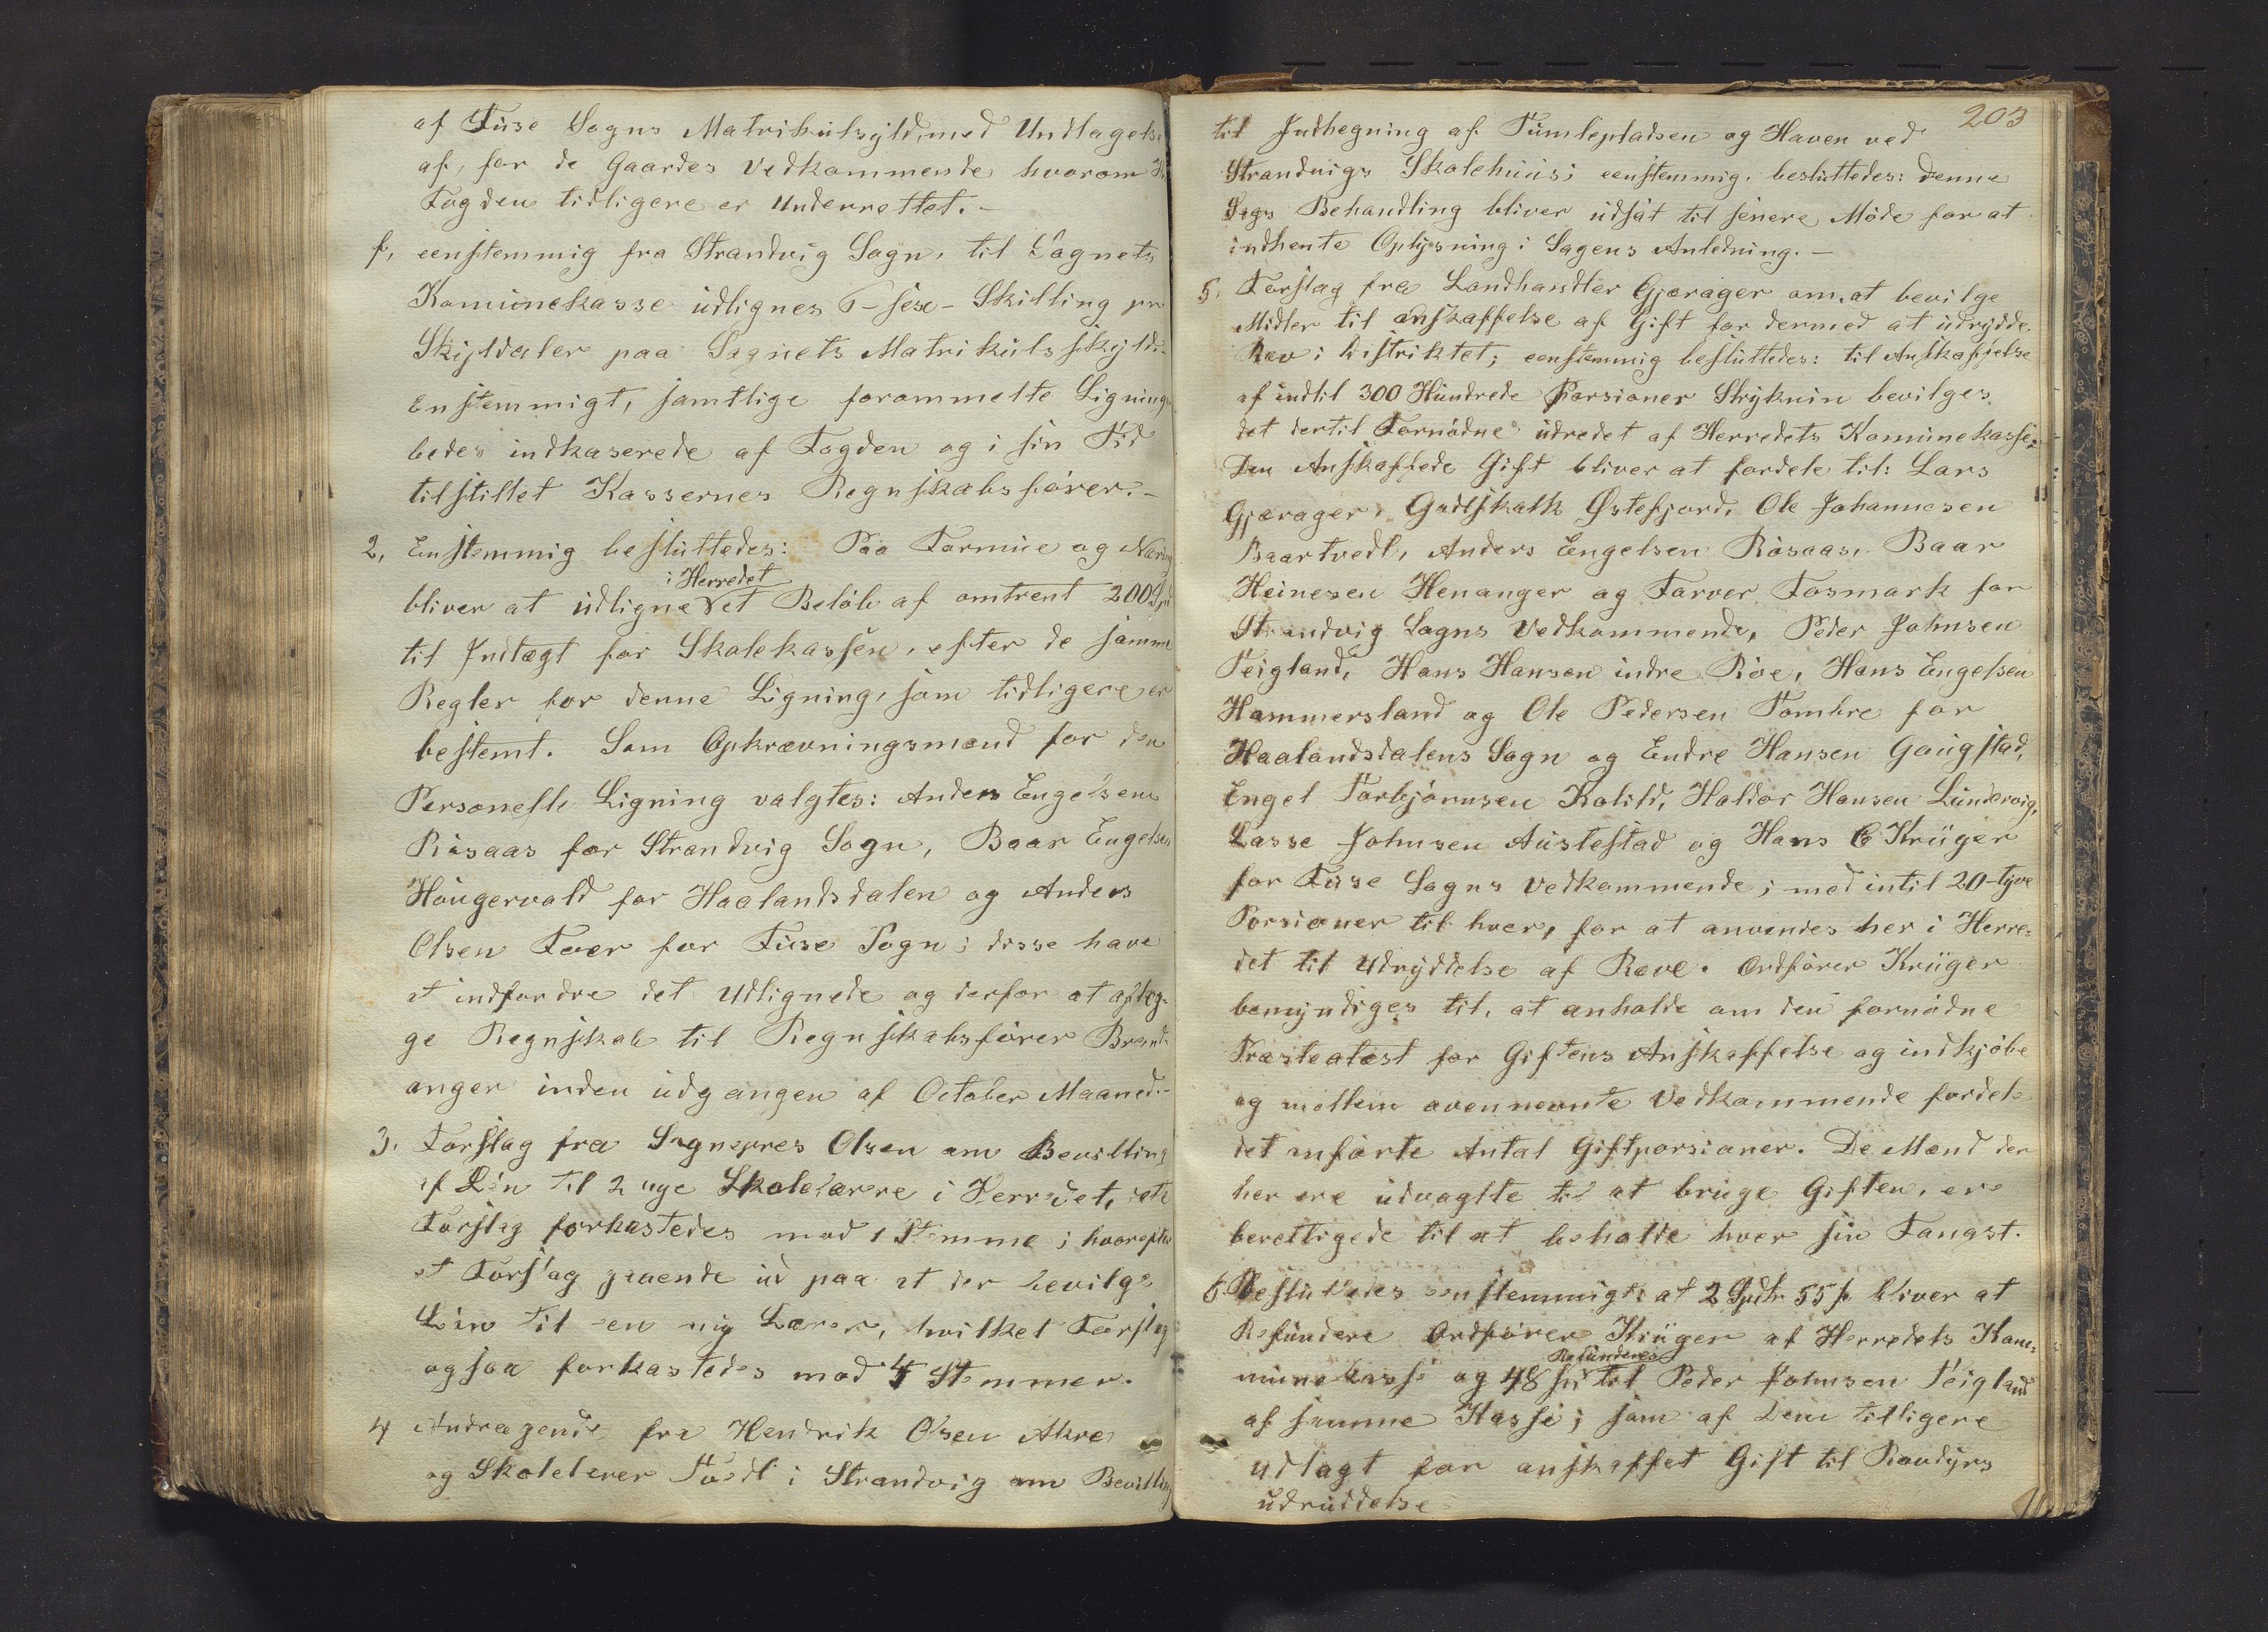 af Fuse Sogns Matrikulskyld, med Undtagelse
af, for de Gaardes Vedkommende hvorom
Fogden tidligere er Underrettet. –
f, eenstemmig fra Strandvig Sogn, til Sognets
Komunekasse udlignes 6 – sex – Skilling pr
Skyldaler paa Sognets Matrikulsskyld. –
Enstemmigt, samtlige forommelte Ligninger
bedes indkaserede af Fogden og i sin Tid
tilstillet Kassernes Regnskabsfører. –
2, Enstemmig besluttedes: Paa Formue og Næring
i Herredet
bliver at udligne et Beløb af omtrent 200 Spd
til Indtægt for Skolekassen, efter de samme
Regler for denne Ligning, som tidligere er
bestemt. Som Opkrævningsmænd for den
Personelle Ligning valgtes: Anders Engelsen
Røsaas for Strandvig Sogn, Baar Engelsen
Hougervold for Haalandsdalen og Anders
Olsen Foer for Fuse Sogn; disse have
at indfordre det Udlignede og derfor at aflæg-
ge Regnskab til Regnskabsfører Brand-
anger inden udgangen af October Maaned. –
3. Forslag fra Sognepres Olsen om Bevilling
af Løn til 2 nye Skolelærere i Herredet, dette
Forslag forkastedes mod 1 Stemme; hvorefter
et Forslag gaaende ud paa at der bevilge
Løn til een ny Lærer, hvilket Forslag
ogsaa forkastedes mod 4 Stemmer.
4 Andragende fra Hendrik Olsen Akre
og Skolelerer Tvedt i Strandvig om Bevilling
203
til Indhegning af Tumlepladsen og Haven ved
Strandvigs Skolehuus; eenstemmig besluttedes: denne
Sags Behandling bliver udsat til senere Møde for at
indhente Oplysning i Sagens Anledning. –
5. Forslag fra Landhandler Gjærager om, at bevilge
Midler til anskaffelse af Gift for dermed at udrydde
Ræv i Distriktet; eenstemmig besluttedes: til Anskaffelse
af indtil 300 Hundrede Porsioner Stryknin bevilges
det dertil Fornødne udredet af Herredets Komunekasse;
Den Anskaffede Gift bliver at fordele til: Lars
Gjærager, Gudtskalk Østefjord, Ole Johannesen
Baartvedt, Anders Engelsen Røsaas, Baar
Heinesen Henanger og Farver Fosmark for
Strandvig Sogns Vedkommende, Peder Johnsen
Teigland, Hans Hansen indre Røe, Hans Engelsen
Hammersland og Ole Pedersen Tombre for
Haalandsdalens Sogn og Endre Hansen Gougstad,
Engel Torbjørnsen Kolild, Haldor Hansen Lundervig,
Lasse Johnsen Austestad og Hans C Krüger
for Fuse Sogns Vedkommende; med intil 20 – tyve
Porsioner til hver, for at anvendes her i Herre-
det til Udryddelse af Ræve. Ordfører Krüger
bemyndiges til, at anholde om den fornødne
Træsteatest for Giftens Anskaffelse og indkjøbe
og mellem ovennevnte Vedkommende fordele
det anførte Antal Giftporsioner. De Mænd der
her ere udvaglte til at bruge Giften, ere
berettigede til at beholde hver sin Fangst.
6. Besluttedes enstemmigt: at 2 Spdlr 55 s bliver at
Refundere Ordfører Krüger af Herredets Kom-
Refunderes
munekasse og 48 s til Peder Johnsen Teigland
af samme Kasse; som af Dem tidligere
udlagt for anskaffet Gift til Rovdyrs
udruddelse